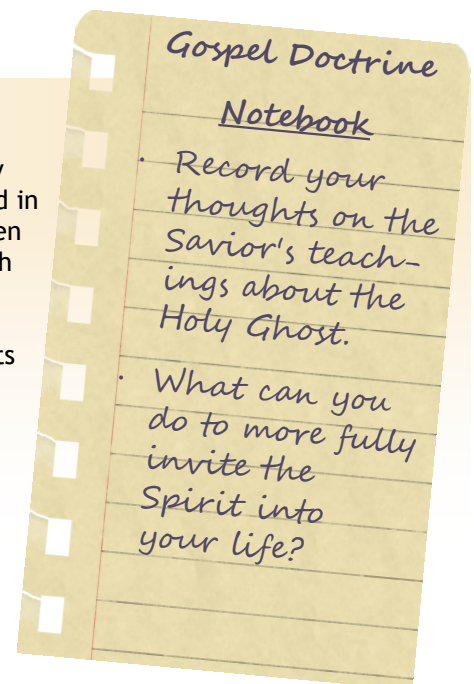 Gospel Doctrine
Notebook
· Record your
thoughts on the
Savior's teach-
ings about the
Holy Ghost.
· What can you
do to more fully
invite the
Spirit into
your life?
d in